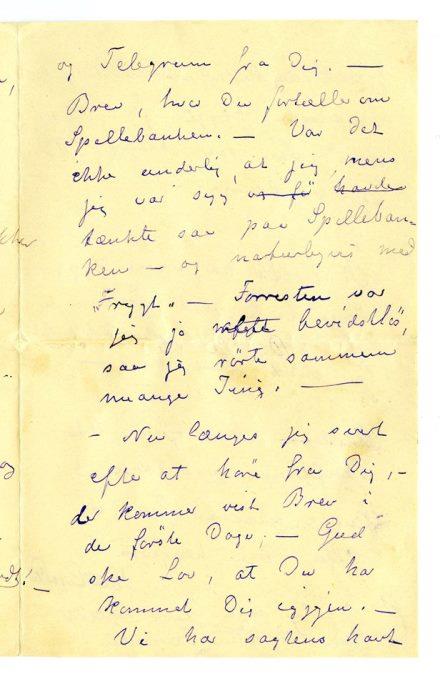 og Telegram fra Dig. —
Brev, hvor Du fortæller om
Spillebanken. — Var det
ikke underlig, at jeg, mens
jeg var syg havde
tænkte saa paa Spilleban-
ken — og naturligvis med
"Frygt" — Forresten var
jeg jo bevidstlös,
saa jeg rörte sammen
mange Ting. —
— Nu længes jeg svært
efter at höre fra Dig, —
der kommer vist Brev i
de förste Dage, — Gud
ske Lov, at Du har
kommet Dig igjen. —
Vi har sagtens havt